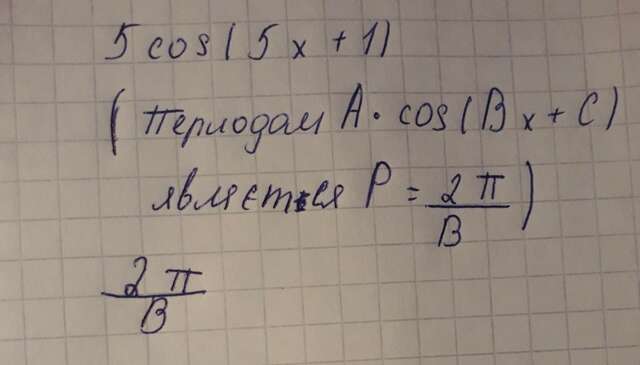 5 cos(5x + 1)
(Периодам A · cos(Bx + C)
является P = 2π/B)
2π/B